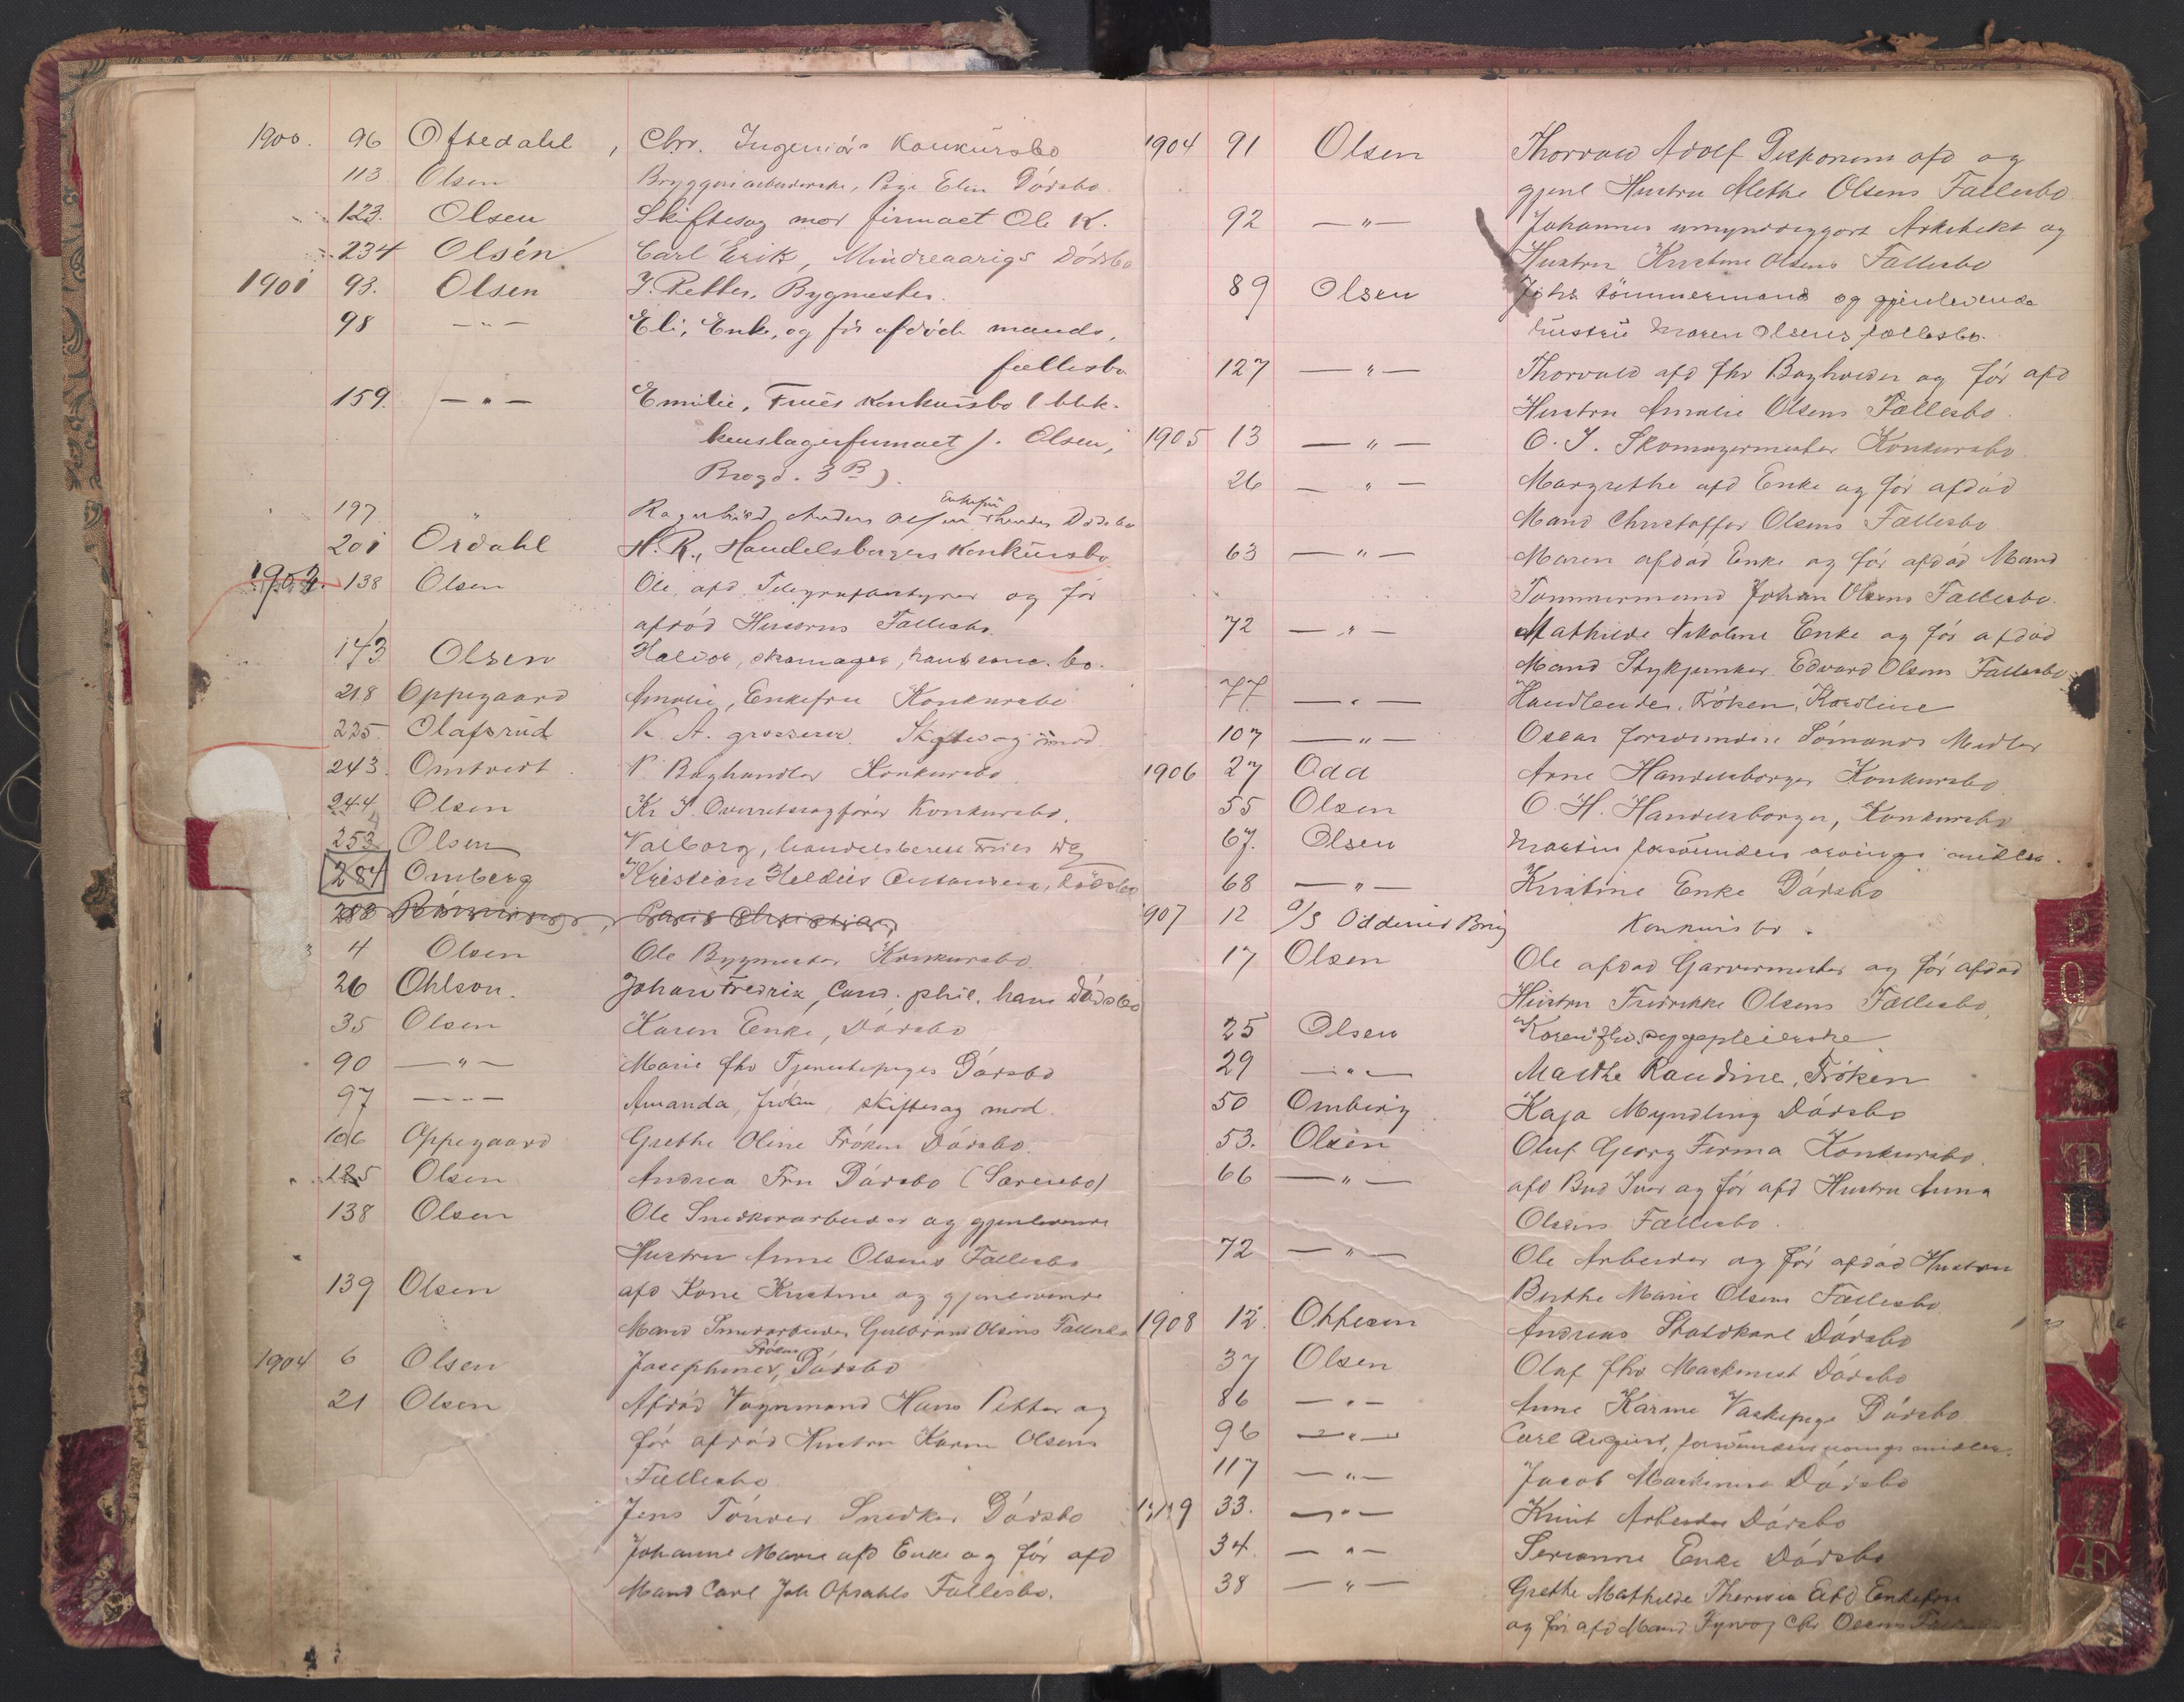 1900. 96 Oftedahl, Chr. Ingeniör Konkursbo
113 Olsen Bryggeriarbeiderske, Pige Elin Dödsbo.
123. Olsen Skiftesag mod firmaet Ole K.
234 Olsén Carl Erik, Mindreaarigs Dödsbo
1901 93. Olsen J. Petter, Bygmester.
98 — " — Eli, Enke, og för afdöde mands,
fællesbo
159. — " — Emilie, Frues Konkursbo (blik-
kenslagerfirmaet J. Olsen,
Brogd. 3 B).
197 " Ragnhild Enkefru Dödsbo
201 Ördahl H. R., Handelsborgers Konkursbo
1902. 138 Olsen Ole, afd. Telegrafbestyrer og för
afdöd Hustrus Fællesbo.
143 Olsen Halvor, skomager, bo.
218 Oppegaard Amalie, Enkefru Konkursbo
225. Olafsrud K. A. grosserer. Skiftesag mod
243. Omtvedt P. Boghandler Konkursbo
244 Olsen Kr Overretssagförer Konkursbo.
253 Olsen Valborg,
287 Omberg Kristian Dödsbo
288
3 4 Olsen Ole Bygmester Konkursbo
26 Ohlson. Johan Fredrik, Cand. phil. hans Dödsbo
35 Olsen Karen Enke, Dödsbo
90 — " — Marie fhv Tjenestepiges Dödsbo
97 — " — Amanda, fröken, skiftesag mod.
106 Oppegaard Grethe Oline Fröken Dödsbo.
125 Olsen Andrea Fru Dödsbo (Særeiebo)
138 Olsen Ole Snedkerarbeider og gjenlevende
Hustru Anne Olsens Fællesbo
139 Olsen afd Kone Kristine og gjenlevende
Mand Gulbrand Olsens Fællesbo
1904 6 Olsen Josephine, Fröken Dödsbo
21 Olsen Afdöd Vognmand Hans Petter og
för afdöd Hustru Karen Olsens
Fællesbo
Jens Tönder Snedker Dödsbo
Johanne Marie afd Enke og för afd
Mand Carl Joh Opsahls Fællesbo.
1904 91 Olsen Thorvald Adolf Disponent afd og
gjenl Hustru Methe Olsens Fællesbo.
92 — " — Johannes umyndiggjort Arkitekt og
Hustru Kristine Olsens Fællesbo
89 Olsen Johs tömmermand og gjenlevende
hustru Maren Olsens fællesbo.
127 — " — Thorvald afd fhv Bogholder og för afd
Hustru Amalie Olsens Fællesbo.
1905 13 — " — O. J. Skomagermester Konkursbo
26 — " — Margrethe afd Enke og för afdöd
Mand Christoffer Olsens Fællesbo
63 — " — Maren afdöd Enke og för afdöd Mand
Tømmermand Johan Olsens Fællesbo.
72 — " — Mathilde Nikoline Enke og för afdöd
Mand Stykjunker Edvard Olsens Fællesbo
77 — " — Handlende, Fröken, Karoline
107 — " — Oscar forsvunden Sömands Midler
1906 27 Odd Arne Handelsborger Konkursbo
55 Olsen O. H. Handelsborger, Konkursbo
67. Olsen Martin forsvunden arvings midler.
68 — " — Kristine Enke Dödsbo
1907 12 A/S Oddenes Brug Konkursbo.
17 Olsen Ole afdöd Garvermester og för afdöd
Hustru Fredrikke Olsens Fællesbo
25 Olsen Karen fhv. sygepleierske
29 — " — Marthe Randine, Fröken
50 Omberg Kaja Myndling Dödsbo
53. Olsen Oluf Georg Firma Konkursbo.
66 — " — afd Bud Iver og för afd Hustru Anna
Olsens Fællesbo.
72 — " — Ole Arbeider og för afdöd Hustru
Berthe Marie Olsens Fællesbo
1908 12. Ottesen Andreas Staldkarl Dödsbo
37 Olsen Olaf fhv Maskinist Dödsbo
86 — " — Anne Karine Vaskepige Dödsbo
96 — " — Carl August, forsvunden arvings midler.
117 — " — Jacob Maskinist Dödsbo
1909 33. — " — Knut Arbeider Dödsbo
34. — " — Serianne Enke Dödsbo
38 — " — Grethe Mathilde Theresia Afd Enkefru
og för afd Mand Chr Olsens
P
Q
S
T
U
V
Z
Æ